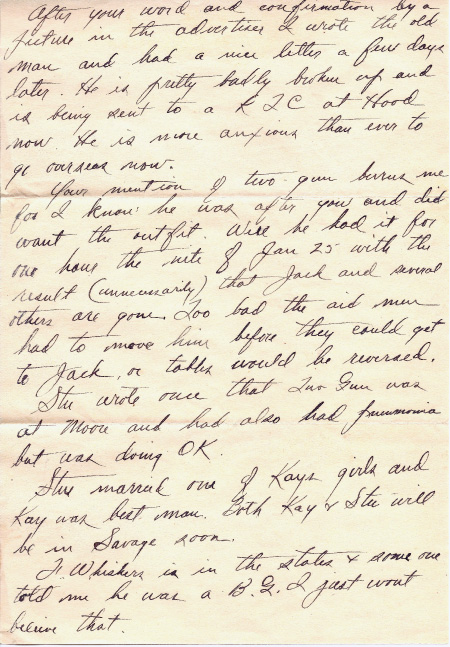 After your word and confirmation by a
picture in the advertiser I wrote the old
man and had a nice letter a few days
later. He is pretty badly broken up and
is being sent to a R T C at Hood
now. He is more anxious than ever to
go overseas now.
Your mention of two-gun burns me
for I know he was after you and did
want the outfit. Well he had it for
one hour the nite of Jan 25 with the
result (unnecessarily) that Jack and several
others are gone. Too bad the aid men
had to move him before they could get
to Jack, or tables would be reversed.
Stu wrote once that Two Gun was
at Moore and had also had pneumonia
but was doing OK.
Stu married one of Kays girls and
Kay was best man. Both Kay & Stu will
be in Savage soon.
J. Whiskers is in the states & some one
told me he was a B.G. I just wont
beleive that.